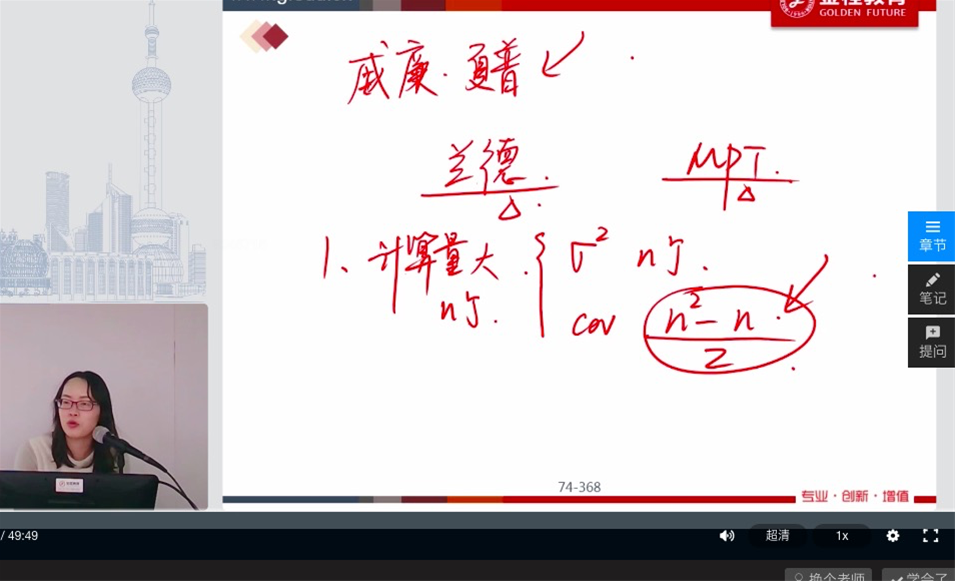 金程教育
GOLDEN FUTURE
威廉·夏普
兰德 MPT
1、计算量大 σ² n个
n个 cov (n²-n)/2
章节
笔记
提问
74-368
专业·创新·增值
/ 49:49 超清 1x
换个老师 学会了